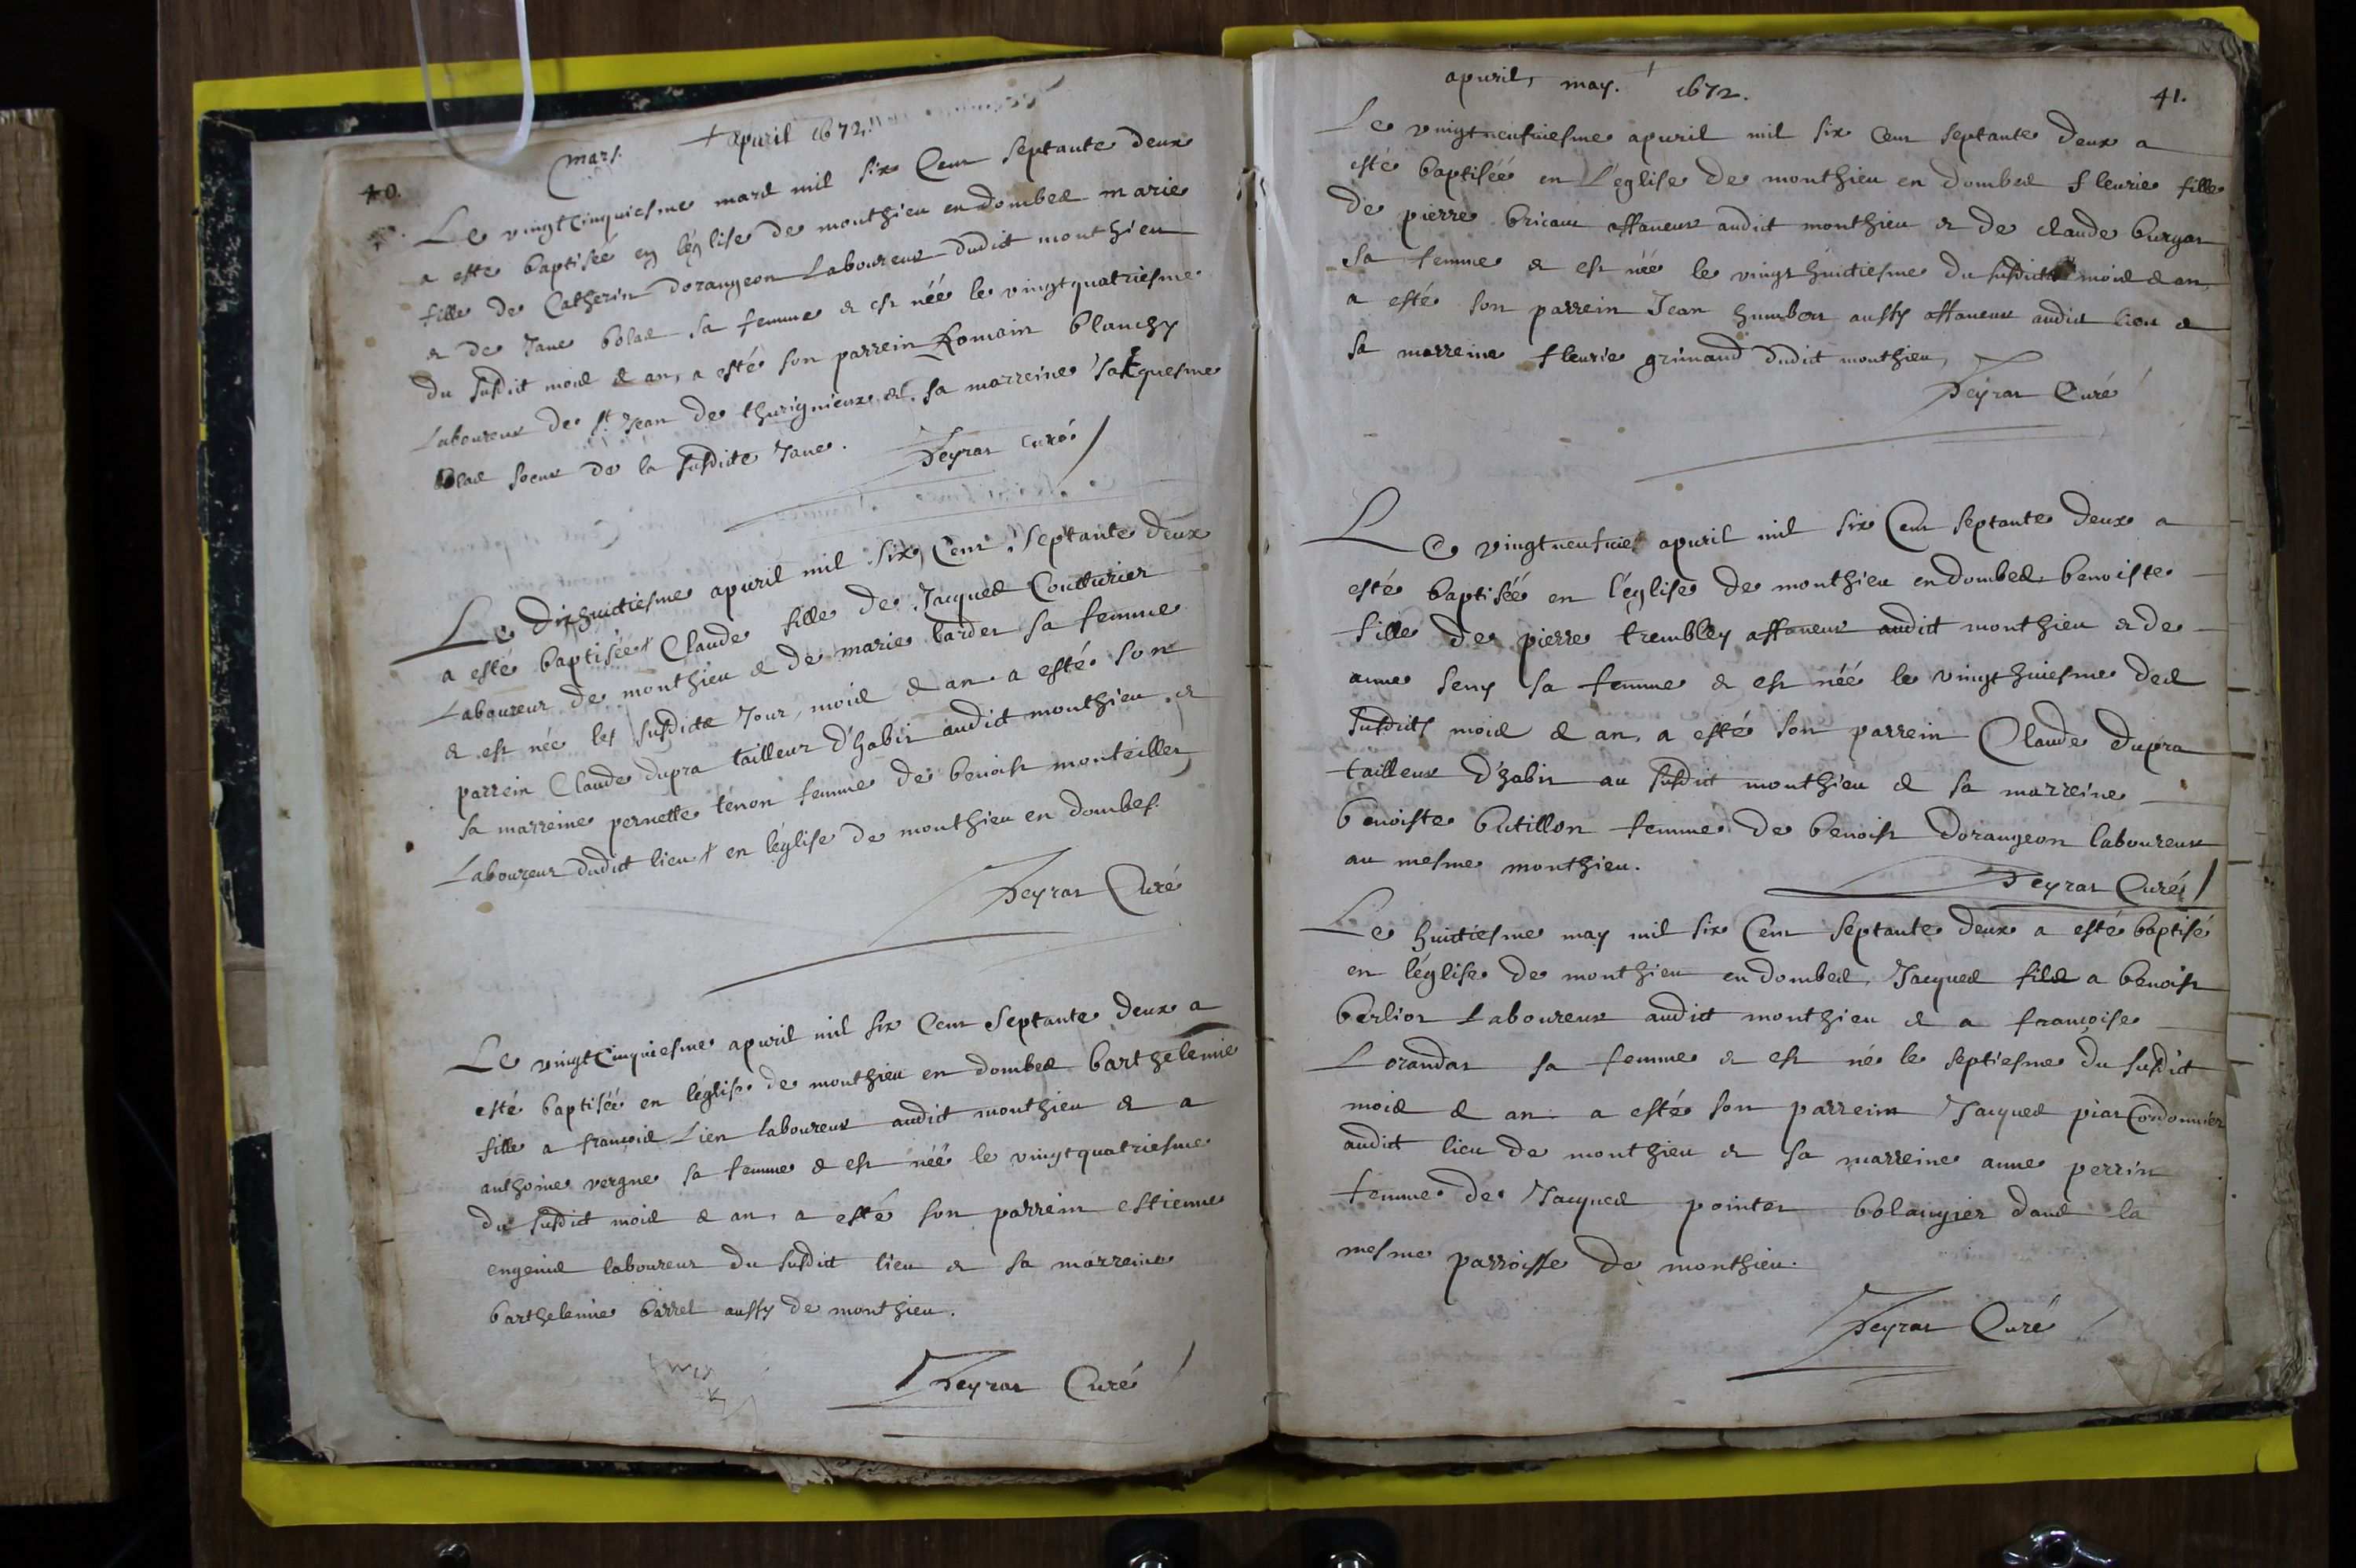 mars. + apuril 1672.
40.
Le vingtcinquiesme mars mil six Cent septante deux
a esté baptisée en léglise de monthieu en dombes marie
fille de Catherin dorangeon Laboureur dudict monthieu
& de Jane bolas sa femme & est née le vingtquatriesme
du susdit mois & an, a esté son parrein Romain blanchy
Laboureur de st Jean de thurignieux et sa marreine Jacquesme
bolas soeur de la susdicte Jane. Peyrat curé
Le dixhuictiesme apuril mil six Cent septante deux
a esté baptisée + Claude fille de Jacques Coutturier
Laboureur de monthieu & de marie bardet sa femme
& est née les susdicts Jour, mois & an a esté son
parrein Claude dupra tailleur d'habit audict monthieu &
sa marreine pernette tenon femme de benoist monteiller
Laboureur dudict lieu + en léglise de monthieu en dombes.
Peyrat Curé
Le vingtCinquiesme apuril mil six Cent septante deux a
esté baptisée en léglise de monthieu en dombes barthelemie
fille a francois Lien laboureur audict monthieu & a
anthoine vergne sa femme & est néé le vingtquatriesme
du susdict mois & an, a esté son parrein estienne
engenie laboureur du susdict lieu & sa marreine
barthelemie barret aussy de monthieu.
Peyrat Curé
apuril, may. + 1672.
41.
Le vingtneufuiesme apuril mil six Cent septante deux a
esté baptiséé en L'eglise de monthieu en dombes fleurie fille
de pierre bricaut affaneur audict monthieu & de claude burgat
sa femme & est néé le vingt huictiesme du susdict mois & an
a esté son parrein Jean humbert aussy affaneur audict lieu &
sa marreine fleurie grimaud dudict monthieu,
Peyrat Curé
Le vingtneufuies apuril mil six Cent septante deux a
esté baptiséé en l'église de monthieu en dombes benoiste
fille de pierre trembley affaneur audict monthieu & de
anne seny sa femme & est néé le vingt huiesme des
susdicts mois & an, a esté son parrein Claude dupra
tailleur d'habit au susdict monthieu & sa marreine
benoiste butillon femme de benoist dorangeon laboureur
au mesme monthieu.
Peyrat Curé
Le huictiesme may mil six Cent septante deux a esté baptisé
en léglise de monthieu en dombes, Jacques fils a benoist
berliot Laboureur audict monthieu & a francoise
Lorandat sa femme & est né le septiesme du susdict
mois & an a esté son parrein Jacques piat Cordonnier
audict lieu de monthieu & sa marreine anne perrin
femme de Jacques pointet bolangier dans la
mesme parroisse de monthieu.
Peyrat Curé